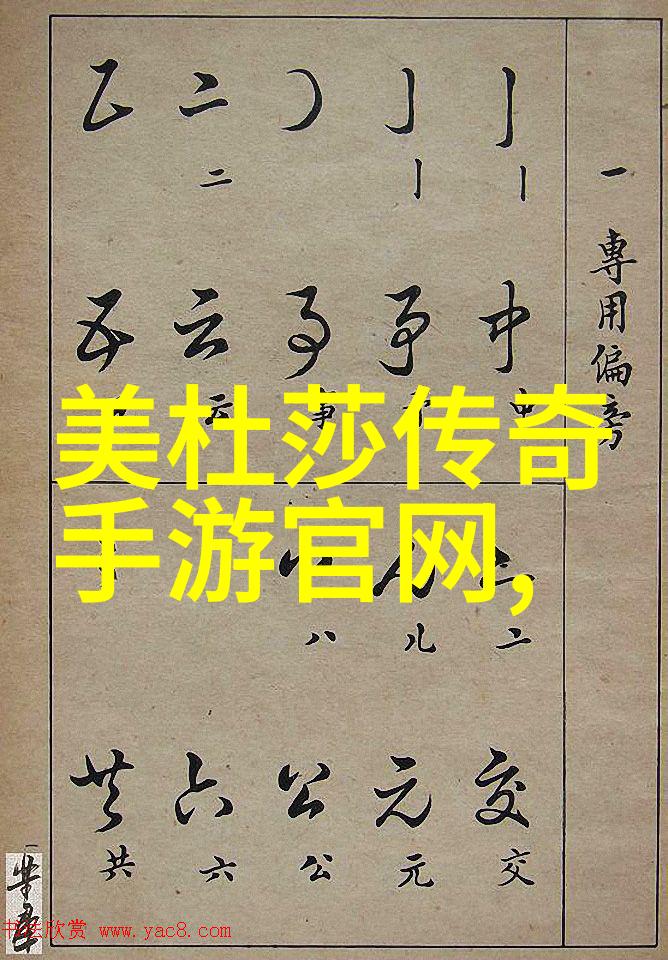 一 專用偏旁
丨 丨 二
中 爭 事 云 五
中 事 云
美杜莎传奇
手游官网,
二 儿 八
交 元 公 六 共
交 元 公 六 共
书法欣赏 www.yac8.com